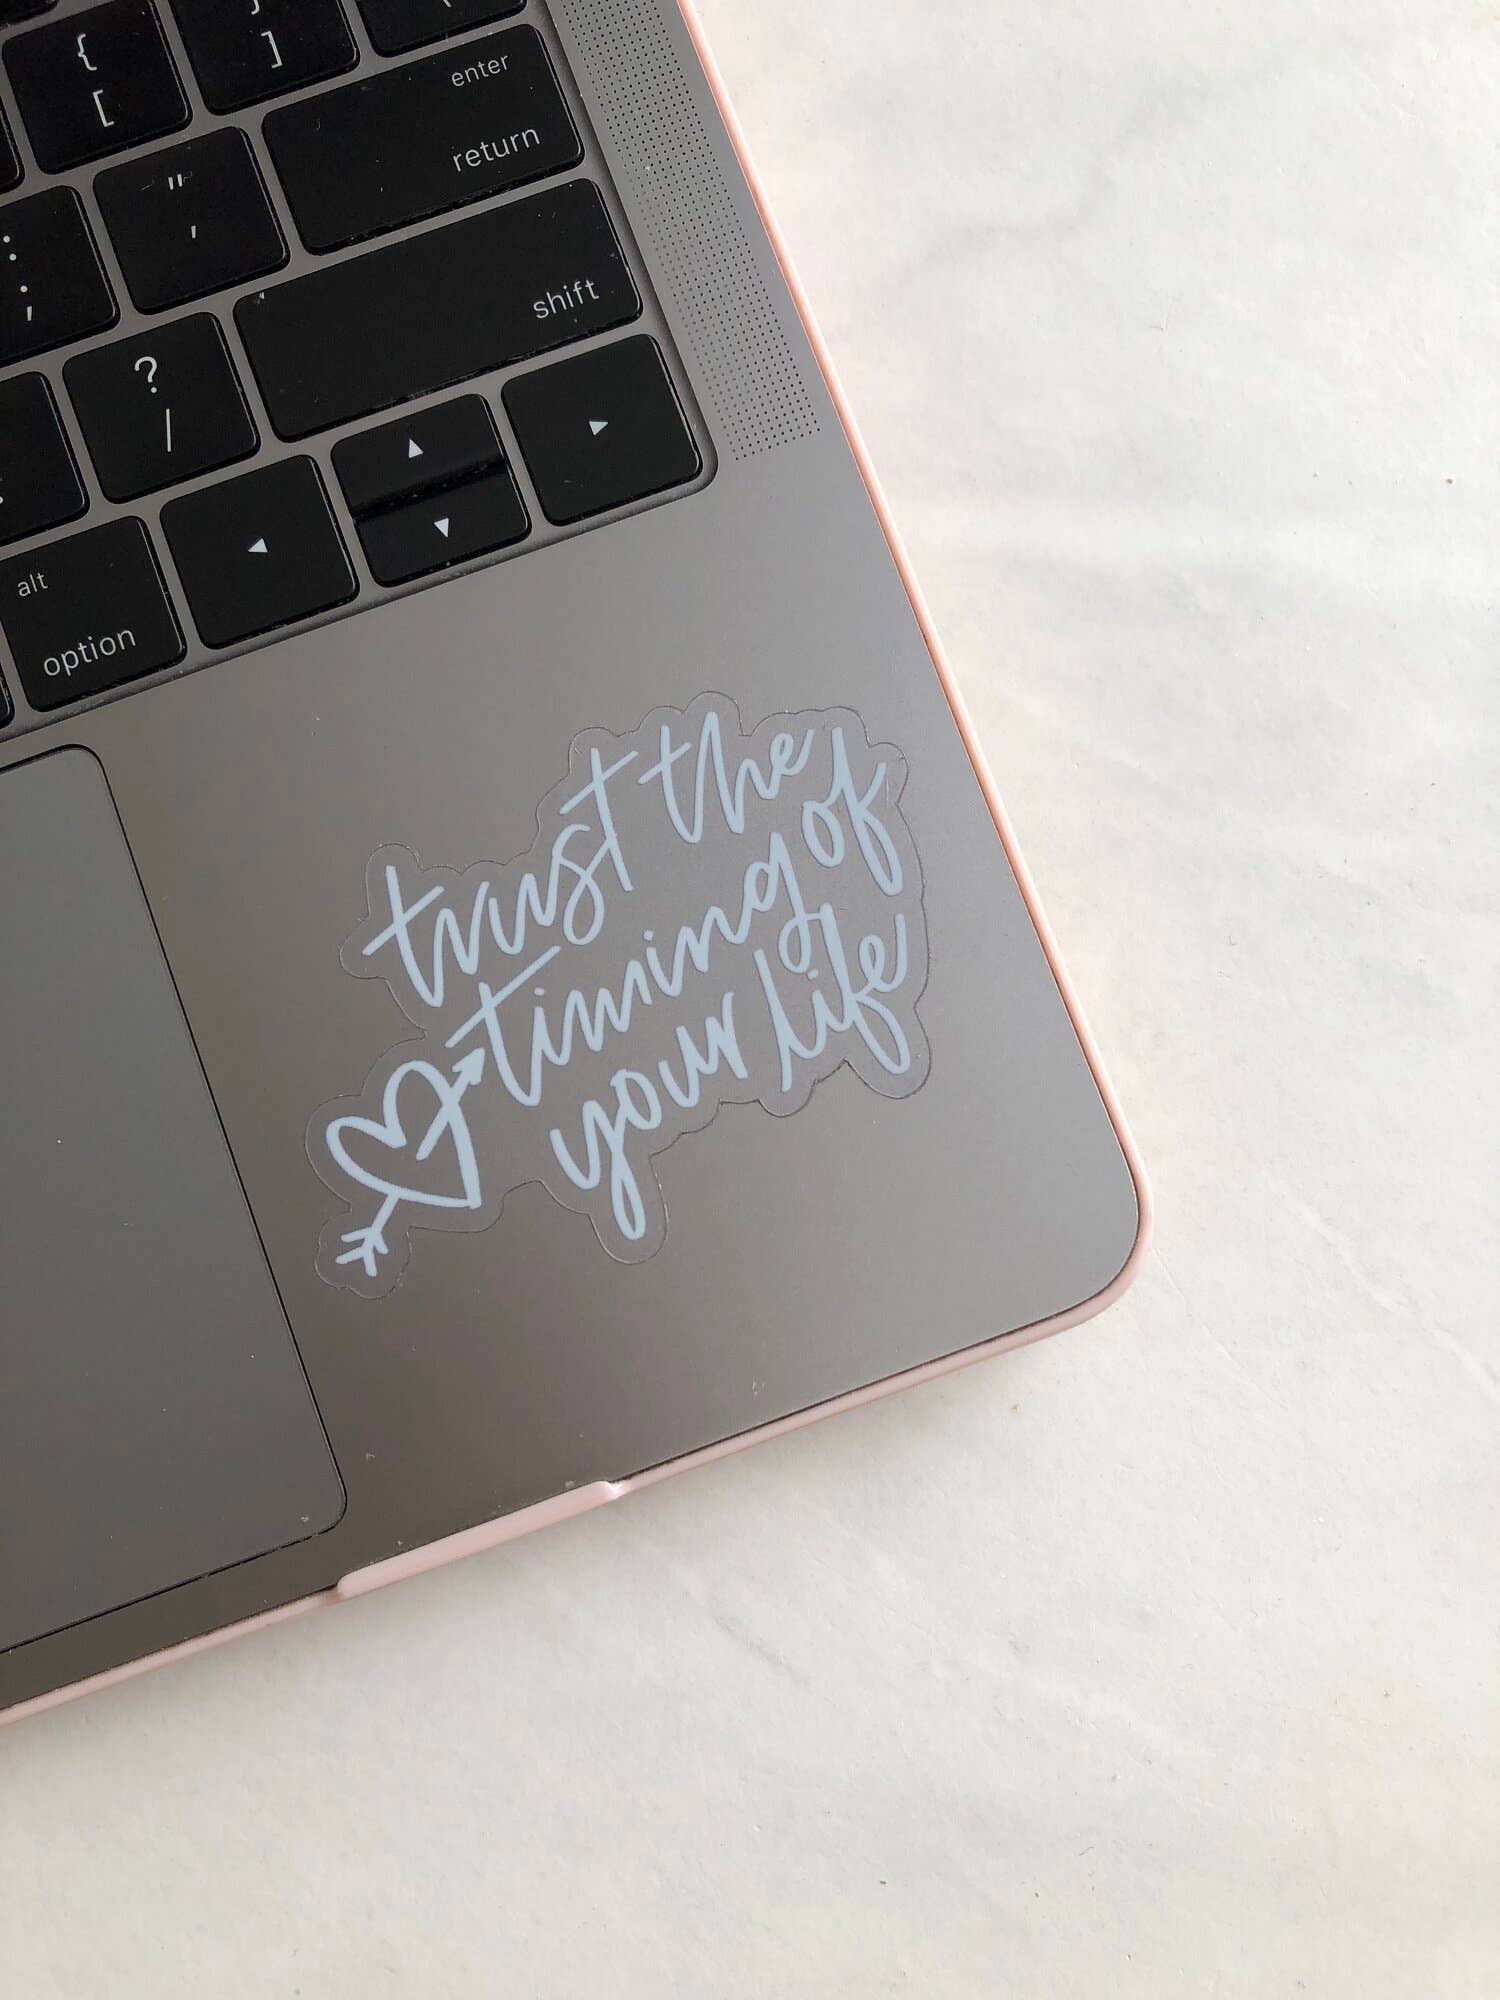 {
[
]
enter
return
"
,
:
;
shift
?
/
alt
option
trust the
timing of
your life